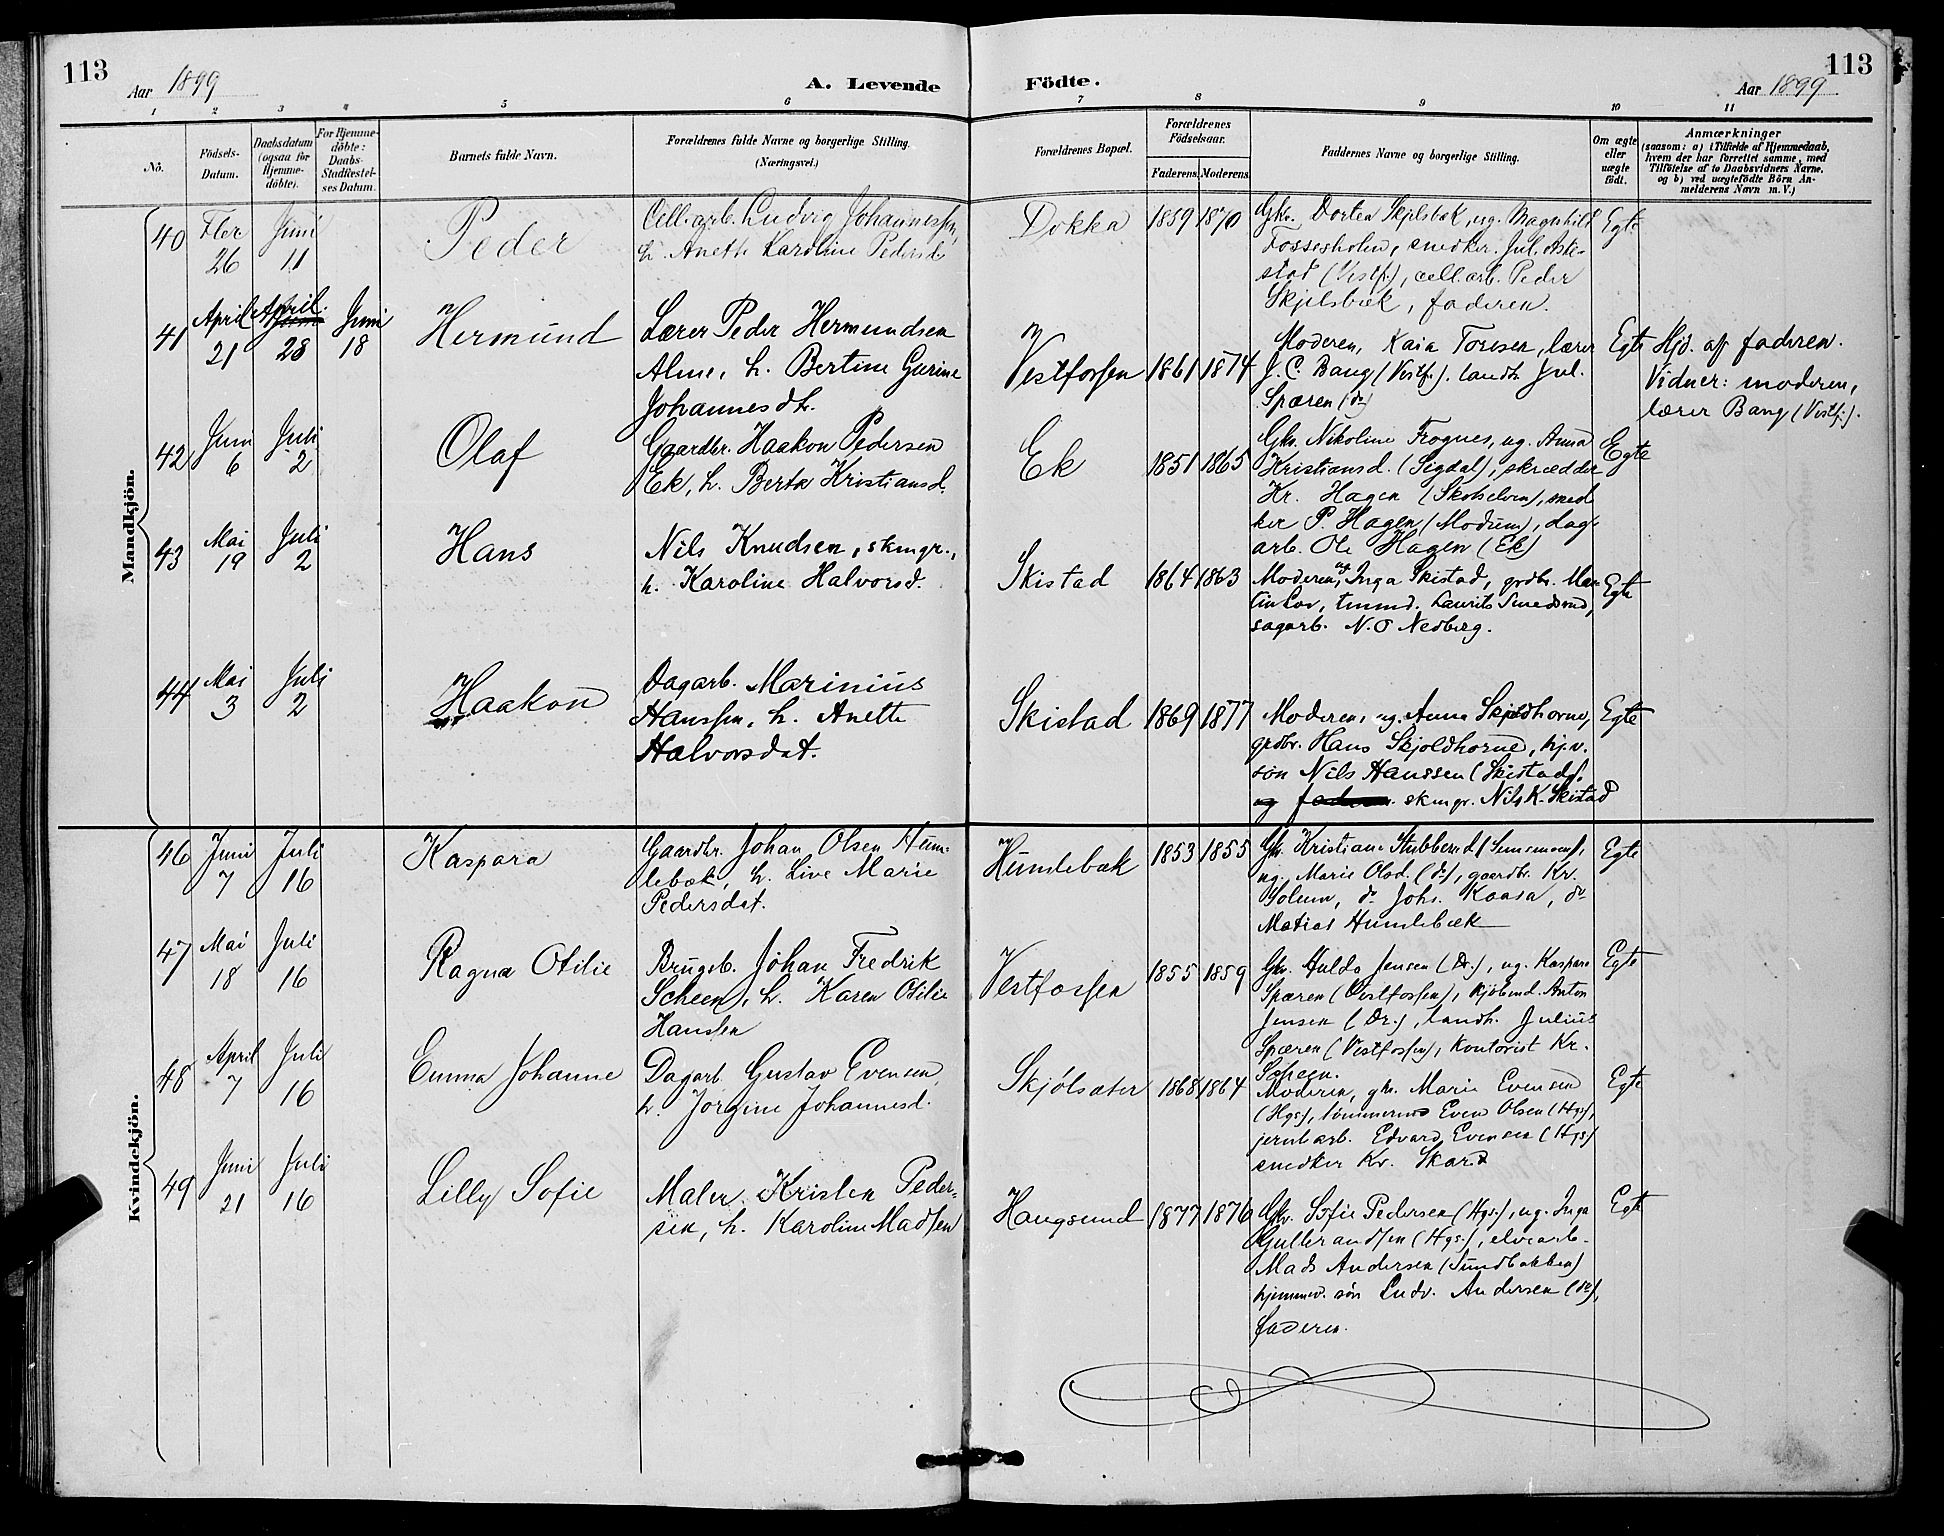 113
Aar 1899
A. Levende
Födte.
Aar 1899
113
1 2 3 4 5 6 7 8 9 10 11
Nô.
Födsels-
Datum.
Daabsdatum
(ogsaa for
Hjemme-
döbte).
For Hjemme-
döbte:
Daabs-
Stadfæstel-
ses Datum.
Barnets fulde Navn.
Forældrenes fulde Navne og borgerlige Stilling.
(Næringsvei.)
Forældrenes Bopæl.
Forældrenes
Födselsaar.
Faderens.
Moderens.
Faddernes Navne og borgerlige Stilling.
Om ægte
eller
uægte
födt.
Anmærkninger
(saasom: a) i Tilfælde af Hjemmedaab,
hvem der har forrettet samme, med
Tilföielse af to Daabsvidners Navne,
og b) ved uægtefödte Börn An-
melderens Navn m. V.)
Mandkjön.
40
26
Juni
11
Peder
Cell.arb. Ludvig Johannessen,
h. Anette Karoline Pedersd.
Dokka
1859
1870
Gkv. Dorten Skjelsbæk, ug. Magnhild
Fossesholm, snedker Jul. Aske-
stad (Vestf.), cell.arb. Peder
Skjelsbæk, faderen.
Egte
41
April
21
April
28
Juni
18
Hermund
Lærer Peder Hermundsen
Alme, h. Bertine Gurine
Johannesdt.
Vestfossen
1861
1874
Moderen, Kaia Toresen, lærer
J. C. Bang (Vestf.). landh. Jul.
Spæren (do)
Egte
Hjd. af faderen.
Vidner: moderen,
lærer Bang (Vestf.).
42
Juni
6
Juli
2
Olaf
Gaardbr. Haakon Pedersen
Ek, h. Berta Kristiansd.
Ek
1851
1865
Gkv. Nikoline Frognes, ug. Anna
Kristiansd. (Sigdal), skrædder
Kr. Hagen (Skotselven), sned
ker P. Hagen (Modum), dag-
arb. Ole Hagen (Ek)
Egte
43
Mai
19
Juli
2
Hans
Nils Knudsen, skmgr.,
h. Karoline Halvorsd.
Skistad
1864
1863
Moderen, ug. Inga Skistad, grdbr. Mar
tin Lov, tmmd. Laurits Smedsrud,
sagarb. N. O Nedberg.
Egte
44
Mai
3
Juli
2
Haakon
Dagarb. Marinius
Hanssen, h. Anette
Halvorsdat.
Skistad
1869
1877
Moderen, ug. Anna Skjoldhorne,
grdbr. Hans Skjoldhorne, hj.v.
søn Nils Hanssen (Skistad).
og faderen. skmgr. Nils K. Skistad
Egte
Kvindekjön.
46
Juni
7
Juli
16
Kaspara
Gaardbr. Johan Olsen Hum-
lebæk, h. Live Marie
Pedersdat.
Humlebæk
1853
1855
Gkv. Kristiane Stubberud
ug. Marie Olsd. (do), gaardbr. Kr.
Solum, do Johs. Kaasa, do
Matias Humlebæk
Egte
47
Mai
18
Juli
16
Ragna Otilie
Brugsb. Johan Fredrik
Scheen, h. Karen Otilie
Hansen
Vestfossen
1855
1859
Gkv. Hulda Jensen (Dr.), ug. Kaspara
Spæren (Vestfossen), kjøbmd. Anton
Jensen (Dr.), landh. Julius
Spæren (Vestfossen), kontorist Kr.
Scheen.
Egte
48
April
7
Juli
16
Emma Johanne
Dagarb. Gustav Evensen
h. Jørgine Johannesd.
Skjølsæter
1868
1864
Moderen, gkv. Marie Evensen
(Hgs), tømmermd Even Olsen (Hgs),
jernb.arb. Edvard Evensen (Hgs)
snedker Kr. Skara
Egte
49
Juni
21
Juli
16
Lilly Sofie
Maler Kristen Peder-
sen, h. Karoline Madsen
Haugsund
1877
1876
Gkv. Sofie Pedersen (Hgs.), ug. Inga
Gulbrandsen (Hgs), elvearb.
Mads Andersen (Sundbakken)
hjemmev. søn Ludv. Andersen (do),
faderen.
Egte